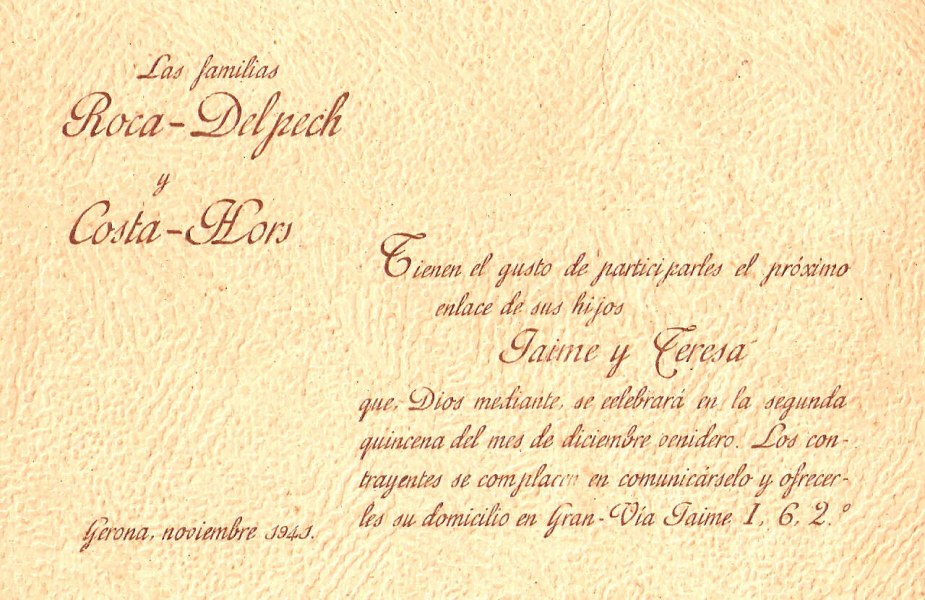 Las familias
Roca-Delpech
y
Costa-Hors
Tienen el gusto de participarles el próximo
enlace de sus hijos
Jaime y Teresa
que, Dios mediante, se celebrará en la segunda
quincena del mes de diciembre venidero. Los con-
trayentes se complacen en comunicárselo y ofrecer-
les su domicilio en Gran-Vía Jaime I, 6, 2.º
Gerona, noviembre 1941.